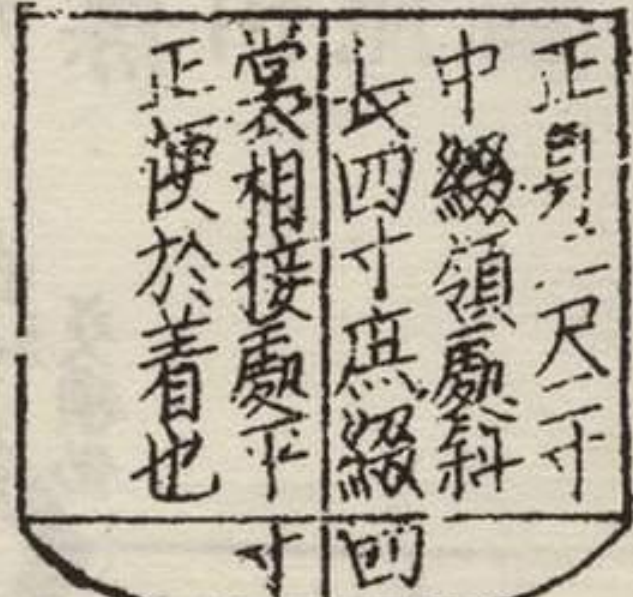 正二尺二寸
中綴領處斜
長四寸庶綴
裳相接處平
正便於着也
四寸